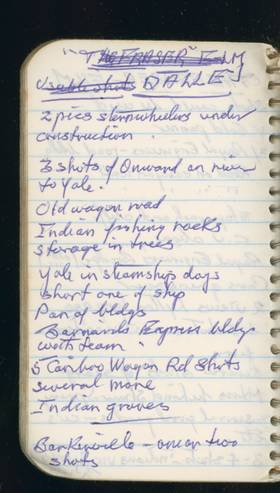 "THE FRASER" FILM
Usable shots DALLE
2 pics sternwheelers under
construction.
3 shots of Onward on river
to Yale.
Old wagon road
Indian fishing racks
storage in trees
Yale in steamship days
short one of ship
Pan of bldgs
Barnards Express bldg
with team
5 Cariboo Wagon Rd shots
several more
Indian graves
Barkerville - one or two
shots